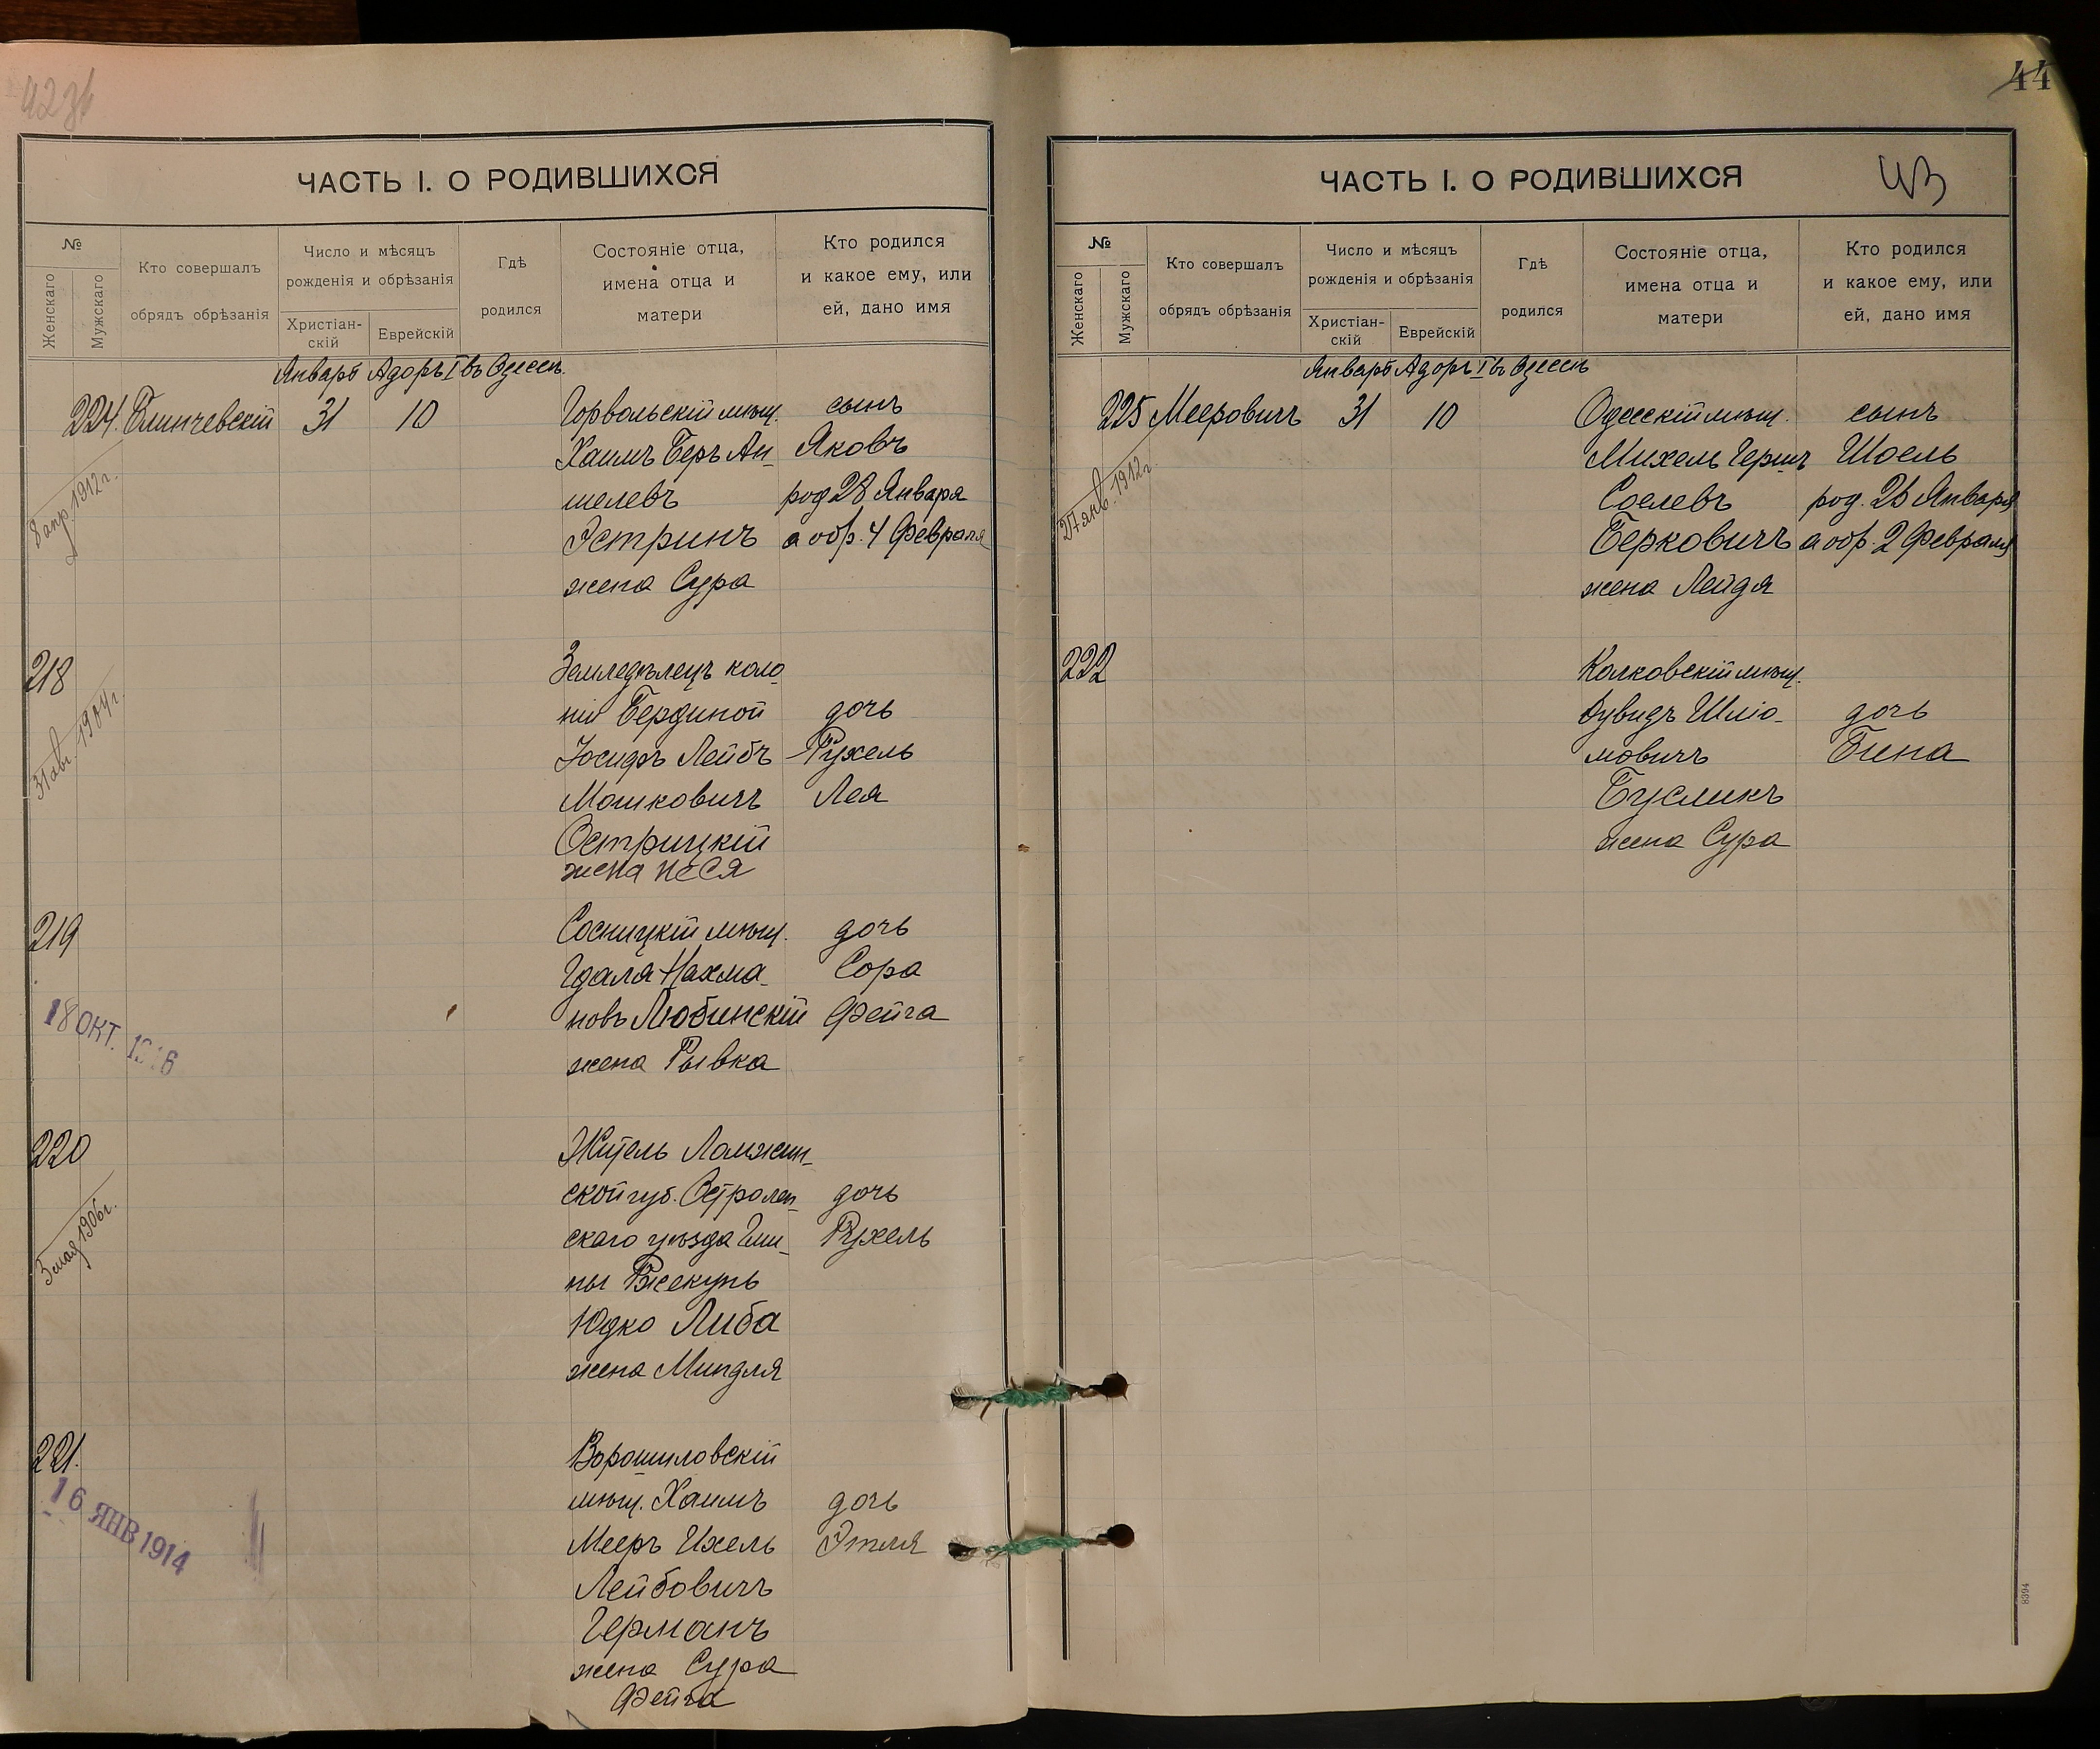 42 зв
ЧАСТЬ I. О РОДИВШИХСЯ
№
Женскаго
Мужскаго
Кто совершалъ
обрядъ обрѣзанія
Число и мѣсяцъ
рожденія и обрѣзанія
Христіан-
скій
Еврейскій
Гдѣ
родился
Состояніе отца,
имена отца и
матери
Кто родился
и какое ему, или
ей, дано имя
Январь Адоръ I въ Одессѣ
224 Блинчевскій 31 10 Горвольскій мѣщ. сынъ
Хаимъ Беръ Ан- Яковъ
шелевъ род 28 Января
Эстринъ а обр. 4 Февраля
жена Сура
8 апр. 1912 г.
218
31 авг. 1904 г.
Земледѣлецъ коло-
ніи Бердиной дочь
Іосифъ Лейбъ Рухель
Мошковичъ Лея
Острицкій
жена Неся
219
18 ОКТ.
Сосницкій мѣщ. дочь
Гдаля Нахма- Сора
новъ Любинскій Фейга
жена Рывка
220
3 мая 1906 г.
Житель Ломжин-
ской губ. Остролен- дочь
скаго уѣзда Гми- Рухель
ны Ржекунь
Юдко Либа
жена Миндля
221.
16 ЯНВ 1914
Ворошиловскій
мѣщ. Хаимъ дочь
Мееръ Ихель Этля
Лейбовичъ
Германъ
жена Сура
Фейга
44
ЧАСТЬ I. О РОДИВШИХСЯ
43
№
Женскаго
Мужскаго
Кто совершалъ
обрядъ обрѣзанія
Число и мѣсяцъ
рожденія и обрѣзанія
Христіан-
скій
Еврейскій
Гдѣ
родился
Состояніе отца,
имена отца и
матери
Кто родился
и какое ему, или
ей, дано имя
Январь Адоръ I въ Одессѣ
225 Мееровичъ 31 10 Одесскій мѣщ. сынъ
Михель Гершъ Шоель
Соелевъ род. 26 Января
Берковичъ а обр. 2 Февраля
жена Лейдя
27 янв. 1912 г.
222
Колковскій мѣщ.
Дувидъ Шліо- дочь
мовичъ Бина
Бусликъ
жена Сура
8394